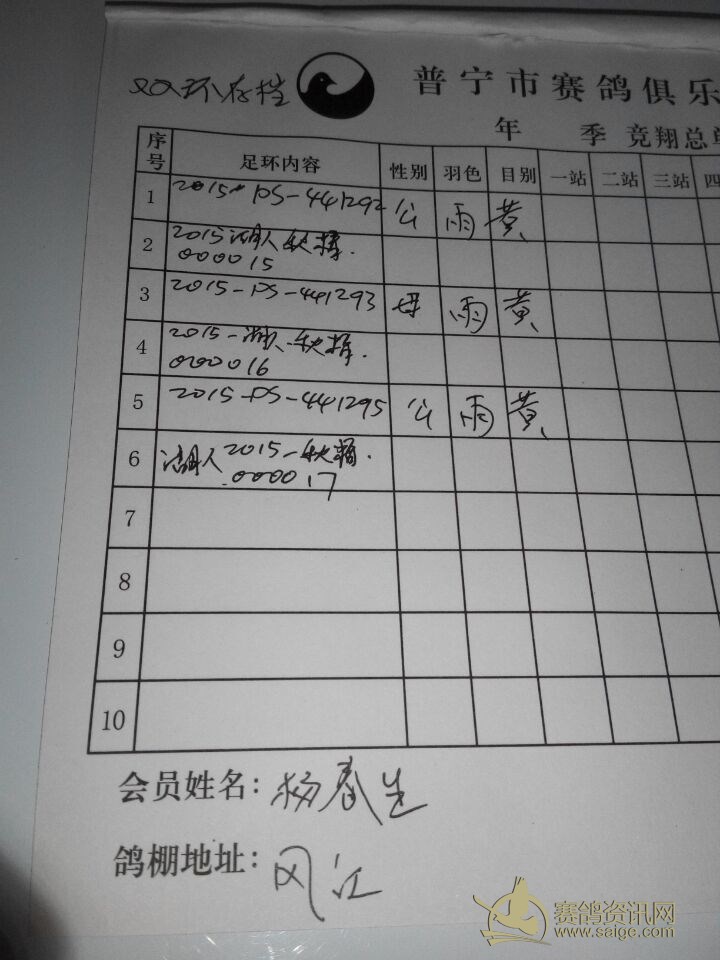 双环存档
普宁市赛鸽俱乐
年 季 竞翔总单
序号 足环内容 性别 羽色 目别 一站 二站 三站 四
1 2015-PS-441292 公 雨 黄
2 2015潮人秋精.
000015
3 2015-PS-441293 母 雨 黄
4 2015-潮人-秋精.
000016
5 2015-PS-441295 公 雨 黄
6 潮人2015-秋精.
000017
7
8
9
10
会员姓名:杨春生
鸽棚地址:
赛鸽资讯网
www.saige.com